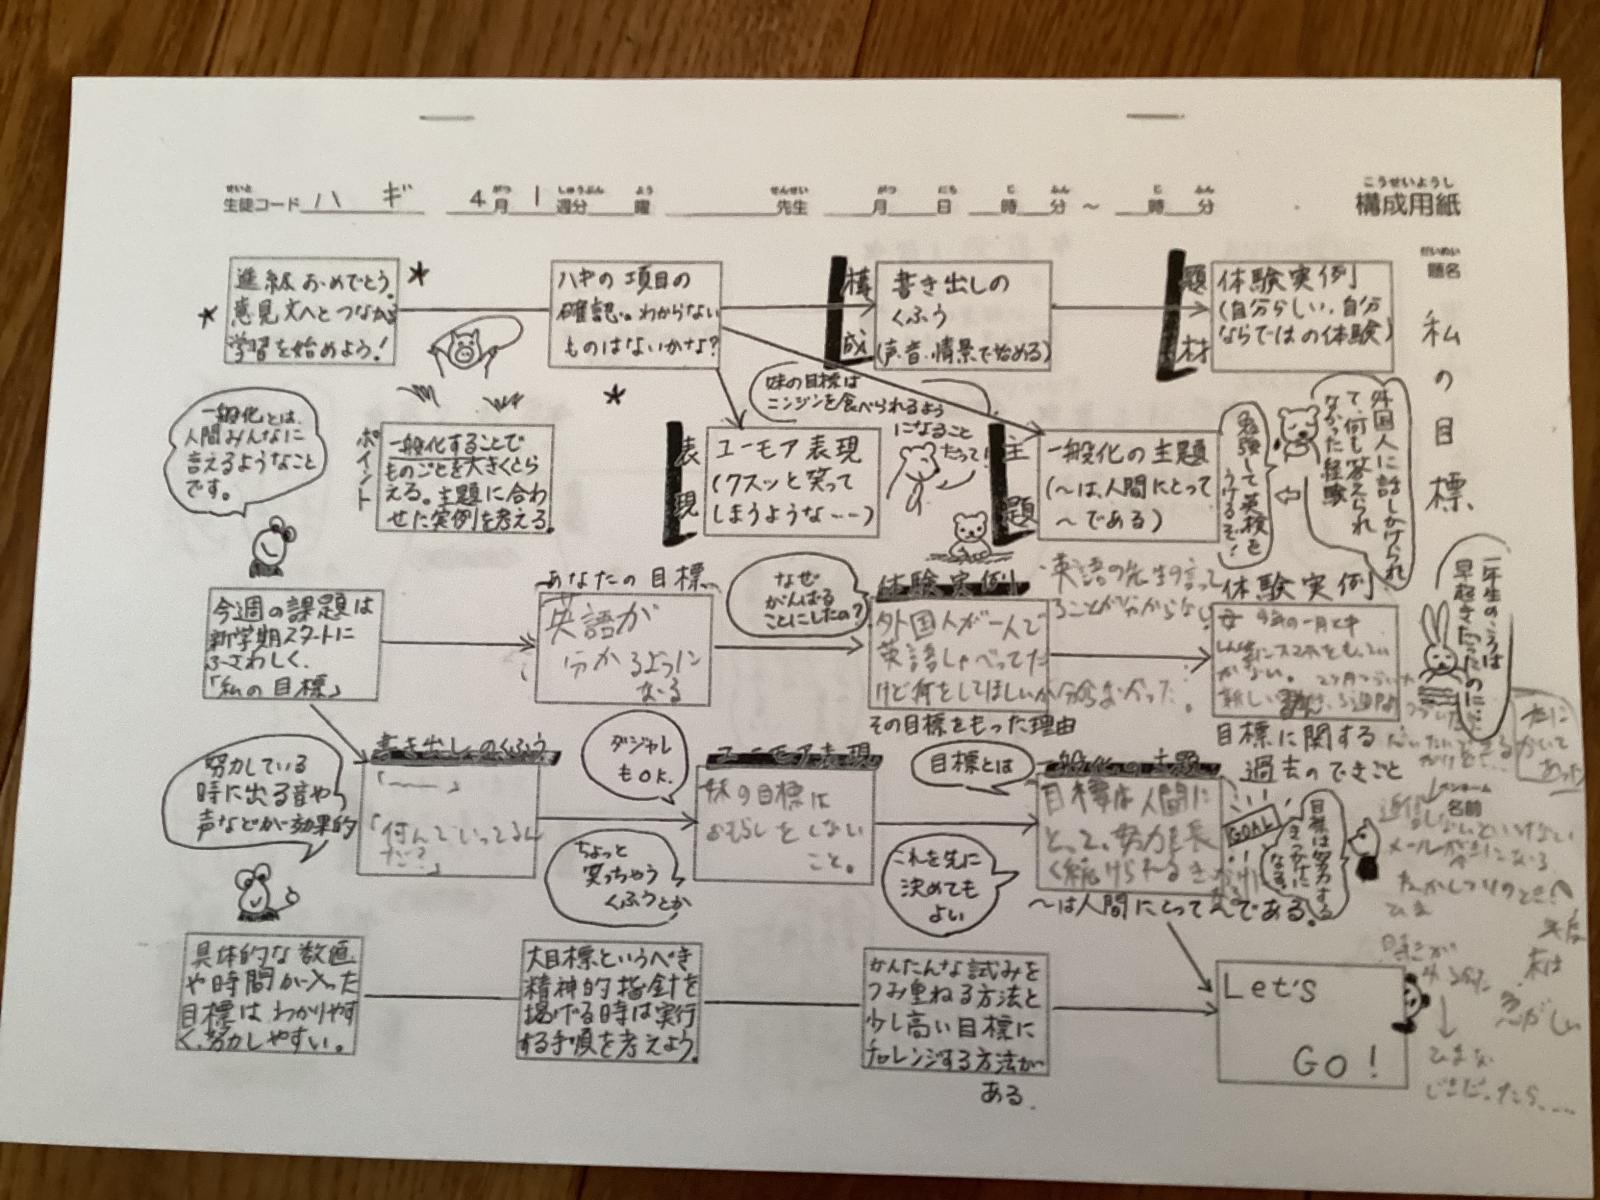 せいと がつ しゅうぶん よう せんせい がつ にち じ ふん じ ふん
生徒コード ハ ギ 4月 1週分 曜 先生 月 日 時 分 〜 時 分
こうせいようし
構成用紙
だいめい
題名
私の目標
進級おめでとう。
意見文へとつながる
学習を始めよう!
ハギの項目の
確認。わからない
ものはないかな?
構成
書き出しの
くふう
(声、音、情景で始める)
題材
体験実例
(自分らしい、自分
ならではの体験)
一般化とは、
人間みんなに
言えるようなこと
です。
ポイント
一般化することで
ものごとを大きくとら
える。主題に合わ
せた実例を考える。
表現
ユーモア表現
(クスッと笑って
しまうような……)
妹の目標は
ニンジンを食べられるよう
になること
だって!
主題
一般化の主題
(〜は、人間にとって
〜である)
外国人に話しかけられ
て、何も答えられ
なかった経験
勉強して英検を
うけるぞ!
今週の課題は
新学期スタートに
ふさわしく、
「私の目標」
あなたの目標
英語が
分かるように
なる
なぜ
がんばる
ことにしたの?
体験実例
外国人が一人で
英語しゃべってた
けど何をしてほしいか分からなかった。
英語の先生の言って
ることが分からない。
その目標をもった理由
体験実例
目標に関する
過去のできごと
一年生のころは
早起きだったのに…
努力している
時に出る音や
声などが効果的
書き出しのくふう
「〜〜」
「何んていってるん
だ?」
ダジャレ
もOK.
ちょっと
笑っちゃう
くふうとか
ユーモア表現
妹の目標は
おもらしをしない
こと。
目標とは
これを先に
決めても
よい
一般化の主題
目標は人間に
とって、努力を長
く続けられるき
〜は人間にとって〜である。
GOAL
目標は努力する
きっかけに
なる。
ペンネーム
名前
具体的な数値
や時間が入った
目標はわかりやす
く、努力しやすい。
大目標というべき
精神的指針を
掲げる時は実行
する手順を考えよう。
かんたんな試みを
つみ重ねる方法と
少し高い目標に
チャレンジする方法が
ある.
Let's
GO!